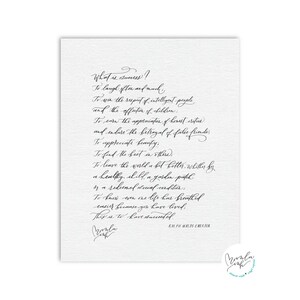 What is success?
To laugh often and much,
To win the respect of intelligent people
and the affection of children,
To earn the appreciation of honest critics
and endure the betrayal of false friends,
To appreciate beauty,
To find the best in others
To leave the world a bit better, whether by
a healthy child, a garden patch
or a redeemed social condition,
To know even one life has breathed
easier because you have lived,
This is to have succeeded.
RALPH WALDO EMERSON